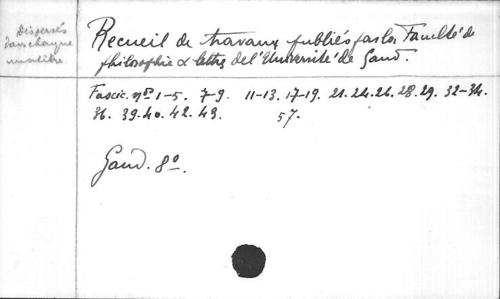 Dispersés
dans chaque
matière.
Recueil de travaux publiés par la Faculté de
philosophie & lettres de l'Université de Gand.
Fascic. nos 1-5. 7-9. 11-13. 17-19. 21. 24. 26. 28. 29. 32-34.
36. 39. 40. 42. 49. 57.
Gand. 8o.